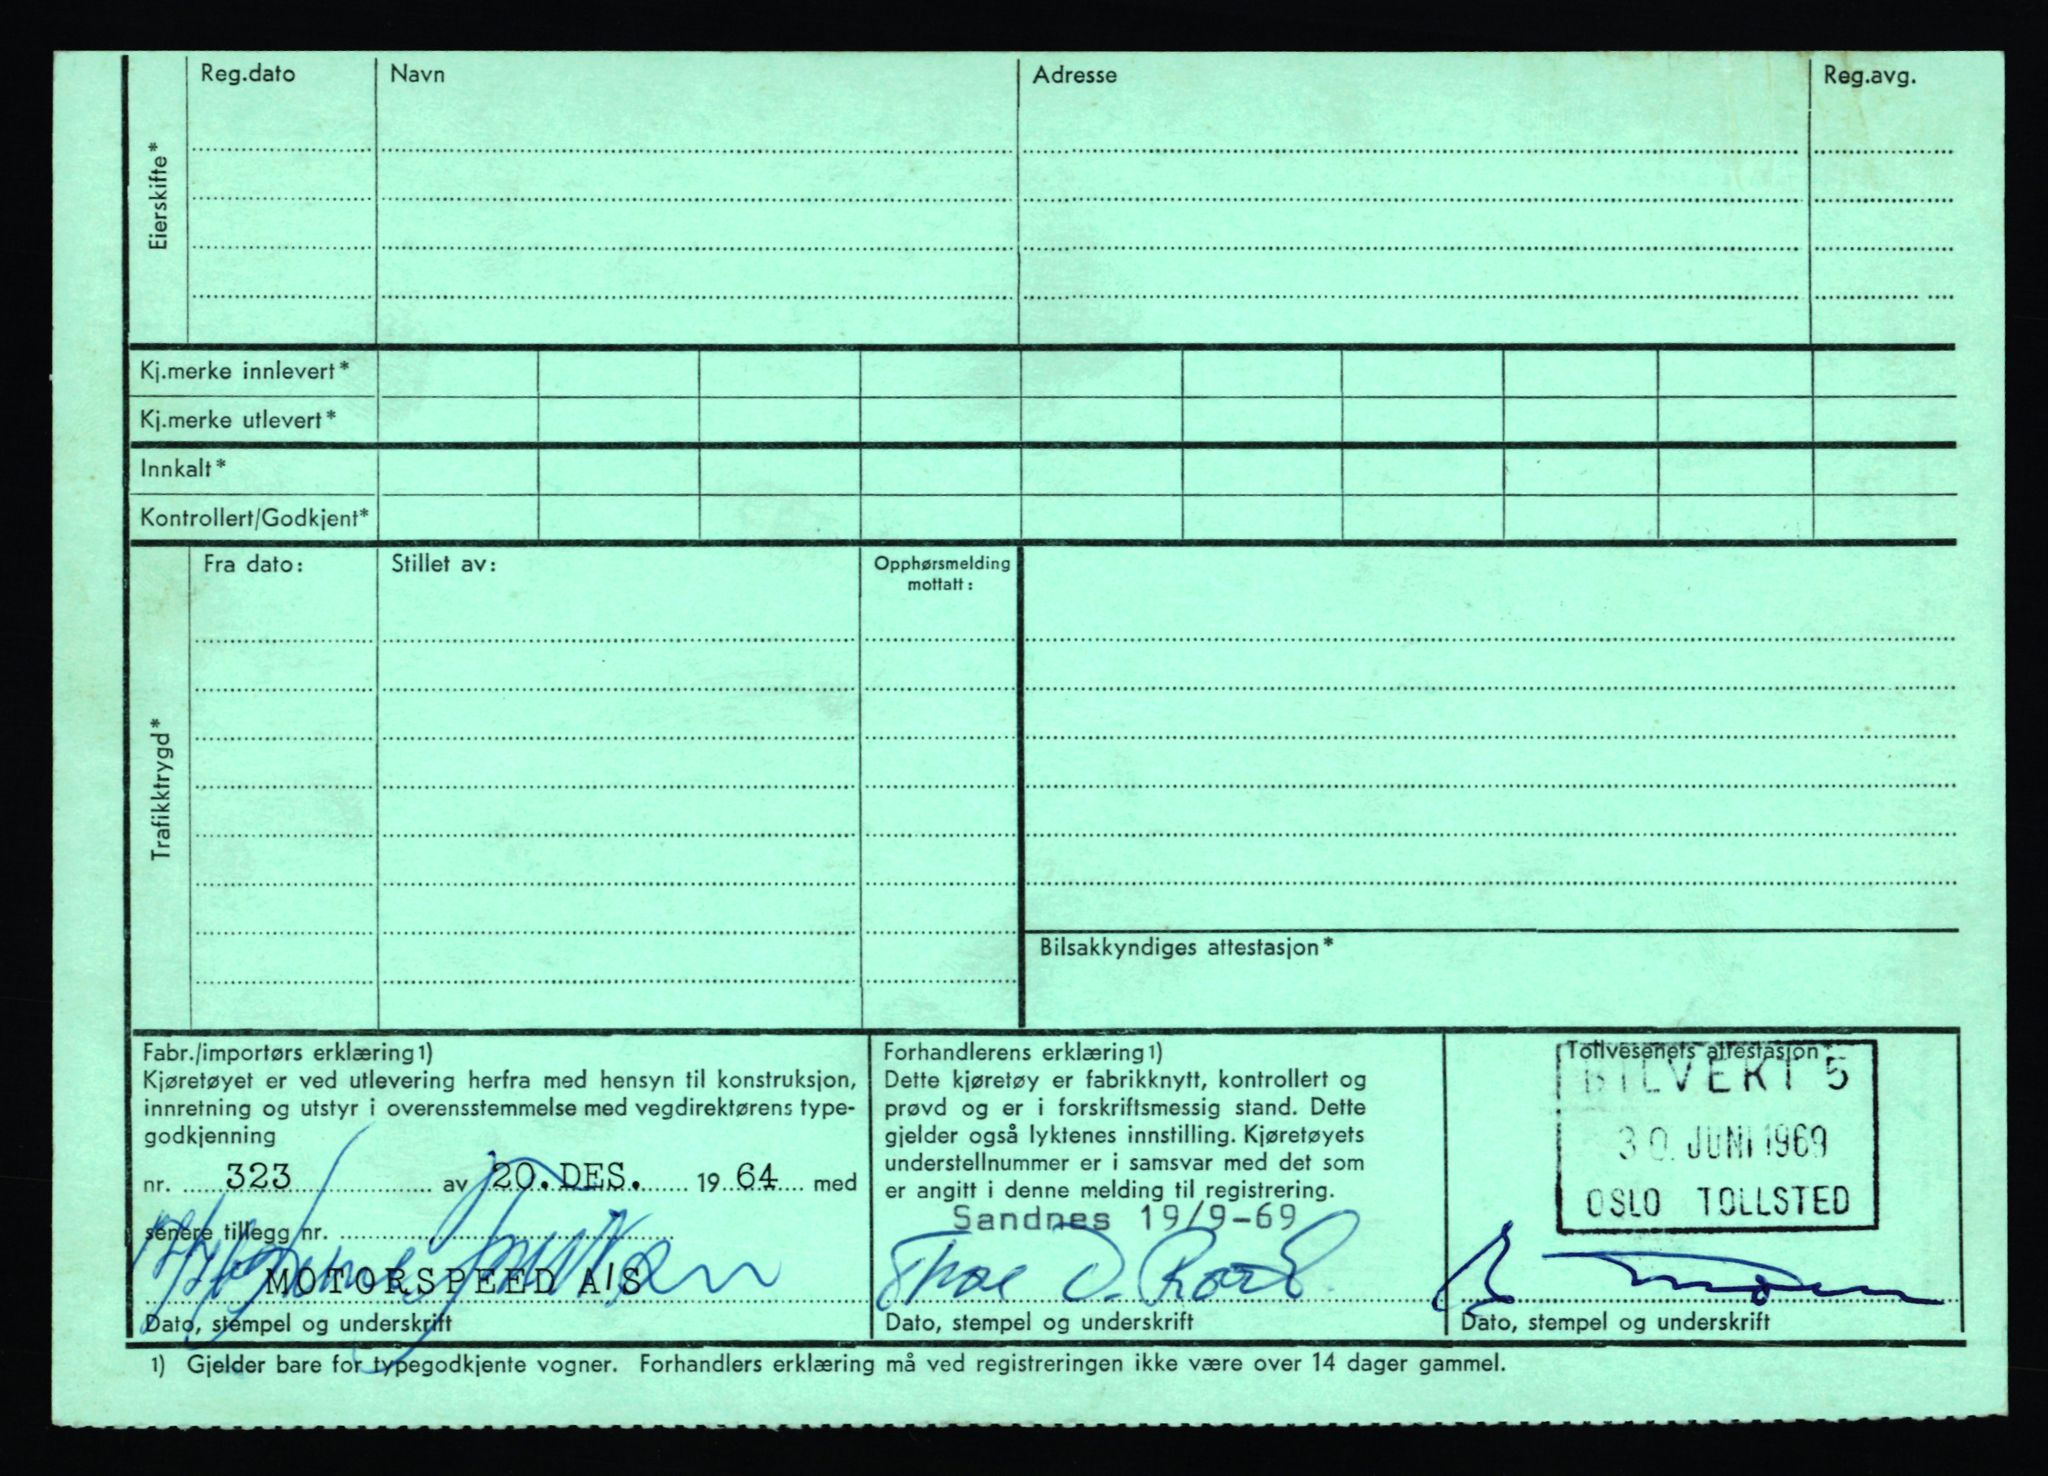 Eierskifte*
Reg.dato
Navn
Adresse
Reg.avg.
Kj.merke innlevert*
Kj.merke utlevert*
Innkalt*
Kontrollert/Godkjent*
Trafikktrygd*
Fra dato:
Stillet av:
Opphørsmelding
mottatt:
Bilsakkyndiges attestasjon*
Fabr./importørs erklæring1)
Kjøretøyet er ved utlevering herfra med hensyn til konstruksjon,
innretning og utstyr i overensstemmelse med vegdirektørens type-
godkjenning
nr. 323 av 20. DES. 19 64 med
senere tillegg nr.
MOTORSPEED A/S
Dato, stempel og underskrift
Forhandlerens erklæring1)
Dette kjøretøy er fabrikknytt, kontrollert og
prøvd og er i forskriftsmessig stand. Dette
gjelder også lyktenes innstilling. Kjøretøyets
understellnummer er i samsvar med det som
er angitt i denne melding til registrering.
Sandnes 19/9-69
Dato, stempel og underskrift
Tollvesenets attestasjon*
BILVERT 5
30. JUNI 1969
OSLO TOLLSTED
Dato, stempel og underskrift
1) Gjelder bare for typegodkjente vogner. Forhandlers erklæring må ved registreringen ikke være over 14 dager gammel.